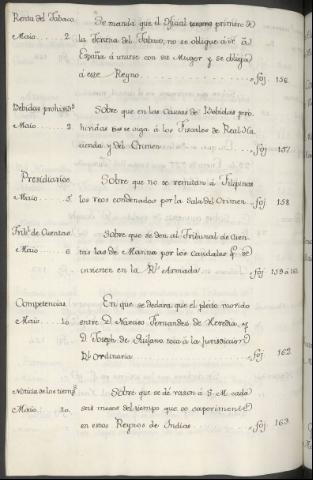 Renta del Tabaco Se manda que el Oficial tercero primero de
Maio....2. la Tercena del Tabaco, no se obligue a ir á
España á unirse con su Muger y se obligue
á este Reyno........foj 156
Bebidas prohivid.s Sobre que en las causas de Bebidas prohi
Maio....2. hividas se oiga á los Fiscales de Real Ha
cienda y del Crimen.......foj 157
Presidiarios Sobre que no se remitan á Filipinas
Maio....5. los reos condenados por la Sala del Crimen...foj 158
Trib.l de Cuentas Sobre que se den al Tribunal de Cuen
Maio....6 tas las de Marina por los caudales q.e se
invierten en la R.l Armada...foj 159 á 161
Competencias En que se declara que el pleito movido
Maio....10 entre D. Narciso Fernandes de Heredia, y
D. Joseph de toca á la Jurisdicion
R.l Ordinaria.......foj 162
Noticia de los tiemp.s Sobre que se dé razon á S. M. cada
Maio....20. seis meses del tiempo que se experimente
en estos Reynos de Indias....foj 163